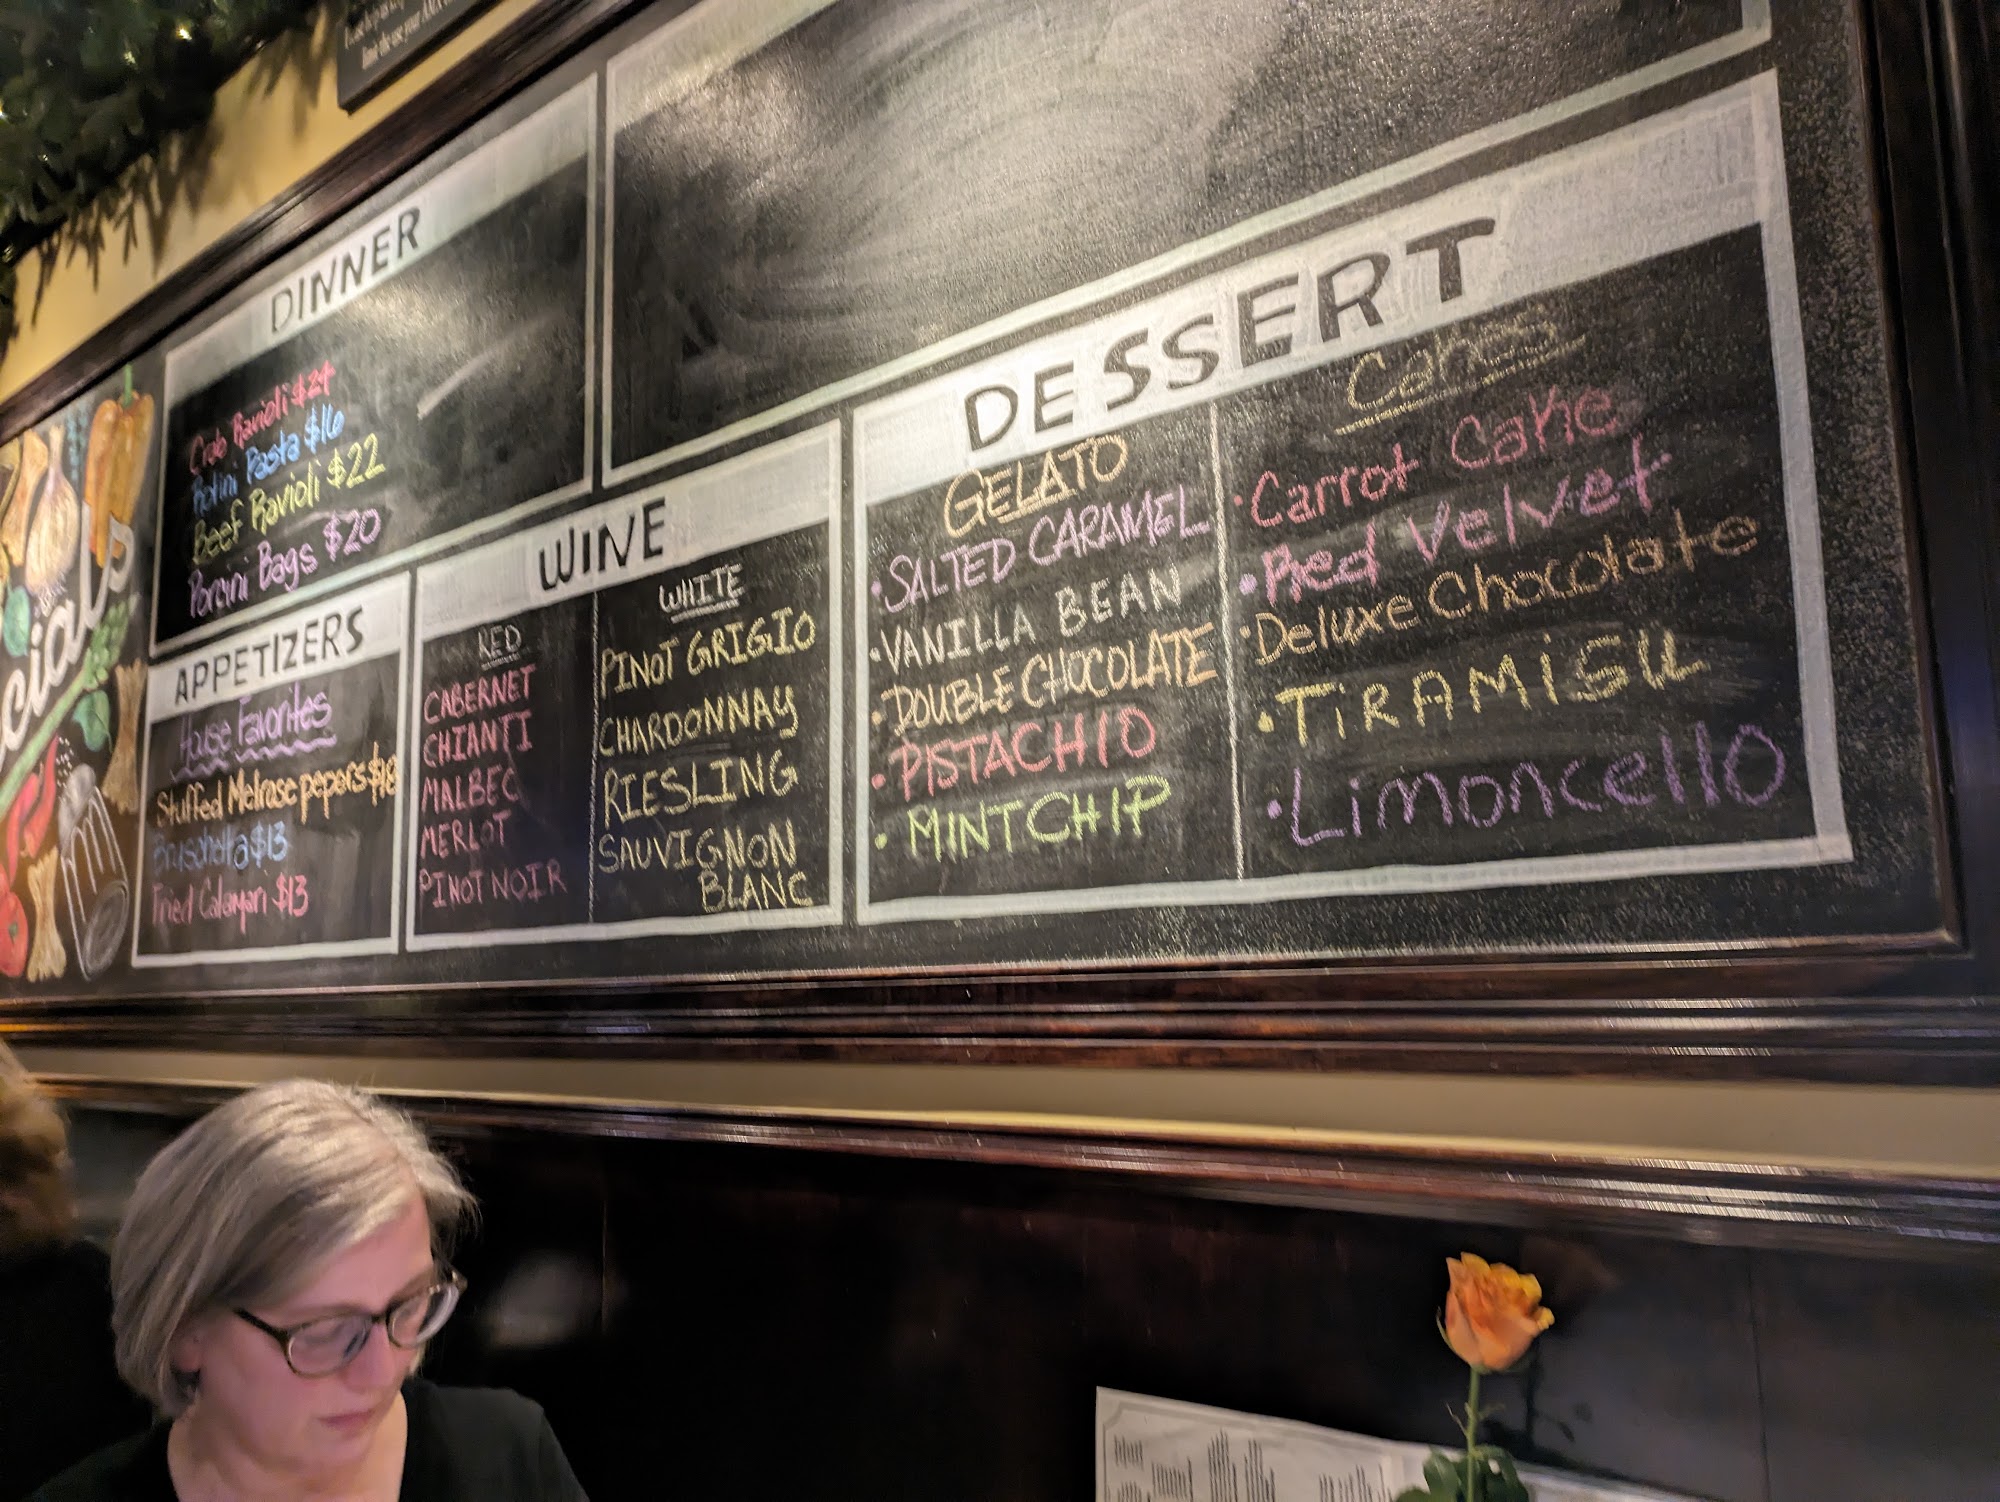 DINNER
Crab Ravioli $24
Rotini Pasta $16
Beef Ravioli $22
Porcini Bags $20
APPETIZERS
House Favorites
Stuffed Melrose pepers $18
Bruschetta $13
Fried Calamari $13
WINE
RED
CABERNET
CHIANTI
MALBEC
MERLOT
PINOT NOIR
WHITE
PINOT GRIGIO
CHARDONNAY
RIESLING
SAUVIGNON
BLANC
DESSERT
GELATO
• SALTED CARAMEL
• VANILLA BEAN
• DOUBLE CHOCOLATE
• PISTACHIO
• MINT CHIP
Cakes
• Carrot Cake
• Red Velvet
• Deluxe Chocolate
• TiRAMiSU
• Limoncello